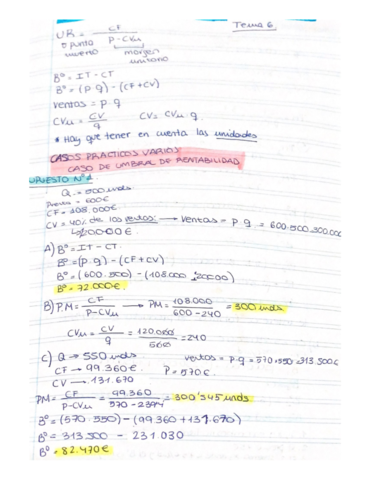 Tema 6.
UR = CF / P-CVu
o punto muerto
margen unitario
Bº = IT - CT
Bº = (P.q) - (CF + CV)
ventas = p.q
CVu = CV / q    CV = CVu.q
* Hay que tener en cuenta las unidades
CASOS PRÁCTICOS VARIOS:
CASO DE UMBRAL DE RENTABILIDAD
Q = 500 unds
= 600€
CF = 108.000€
CV = 40% de las ventas: → ventas = p.q = 600.500
A) Bº = IT - CT
Bº = (p.q) - (CF + CV)
Bº = (600.500) - (108.000
Bº = 72.000€
B) P.M = CF / P-CVu → PM = 108.000 / 600-240 = 300 unds
CVu = CV / q = 120.000 / 500 = 240
C) Q → 550 unds    ventas = p.q = 570.550 = 313.500€
CF → 99.360€    P = 570€
CV → 131.670
PM = CF / P-CVu = 99.360 / 570 - = 300'545 unds
Bº = (570.550) - (99.360 + 131.670)
Bº = 313.500 - 231.030
Bº = 82.470€